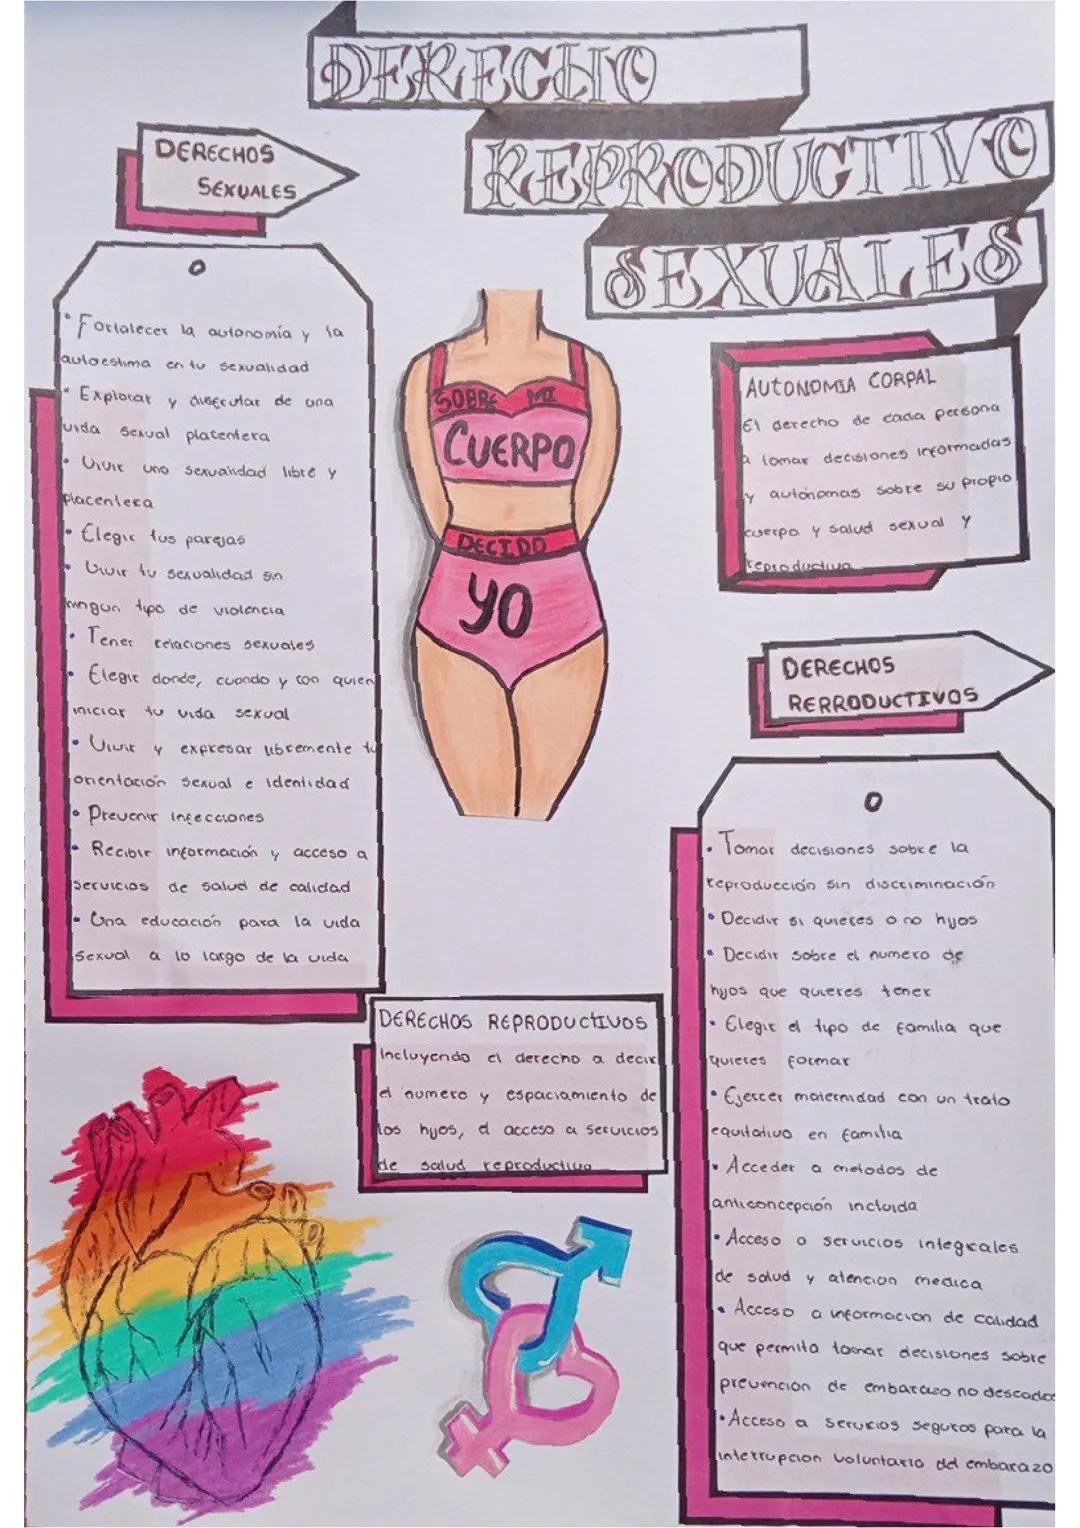 DERECHO
REPRODUCTIVO
SEXUALES
DERECHOS
SEXUALES
• Fortalecer la autonomía y la
autoestima en tu sexualidad
• Explorar y disfrutar de una
vida sexual placentera
• Vivir una sexualidad libre y
placentera
• Elegir tus parejas
• Vivir tu sexualidad sin
ningun tipo de violencia
• Tener relaciones sexuales
• Elegir donde, cuando y con quien
iniciar tu vida sexual
• Vivir y expresar libremente tu
orientación sexual e identidad
• Prevenir infecciones
• Recibir información y acceso a
servicios de salud de calidad
• Una educación para la vida
sexual a lo largo de la vida
SOBRE MI
CUERPO
DECIDO
YO
AUTONOMIA CORPAL
El derecho de cada persona
a tomar decisiones informadas
y autónomas sobre su propio
cuerpo y salud sexual y
reproductiva
DERECHOS REPRODUCTIVOS
Incluyendo el derecho a decir
el numero y espaciamiento de
los hijos, el acceso a servicios
de salud reproductiva
DERECHOS
RERRODUCTIVOS
• Tomar decisiones sobre la
reproducción sin discriminación
• Decidir si quieres o no hijos
• Decidir sobre el numero de
hijos que quieres tener
• Elegir el tipo de familia que
quieres formar
• Ejercer maternidad con un trato
equitativo en familia
• Acceder a metodos de
anticoncepción incluida
• Acceso a servicios integrales
de salud y atencion medica
• Acceso a informacion de calidad
que permita tomar decisiones sobre
prevencion de embarazo no descados
• Acceso a servicios seguros para la
interrupcion voluntario del embarazo